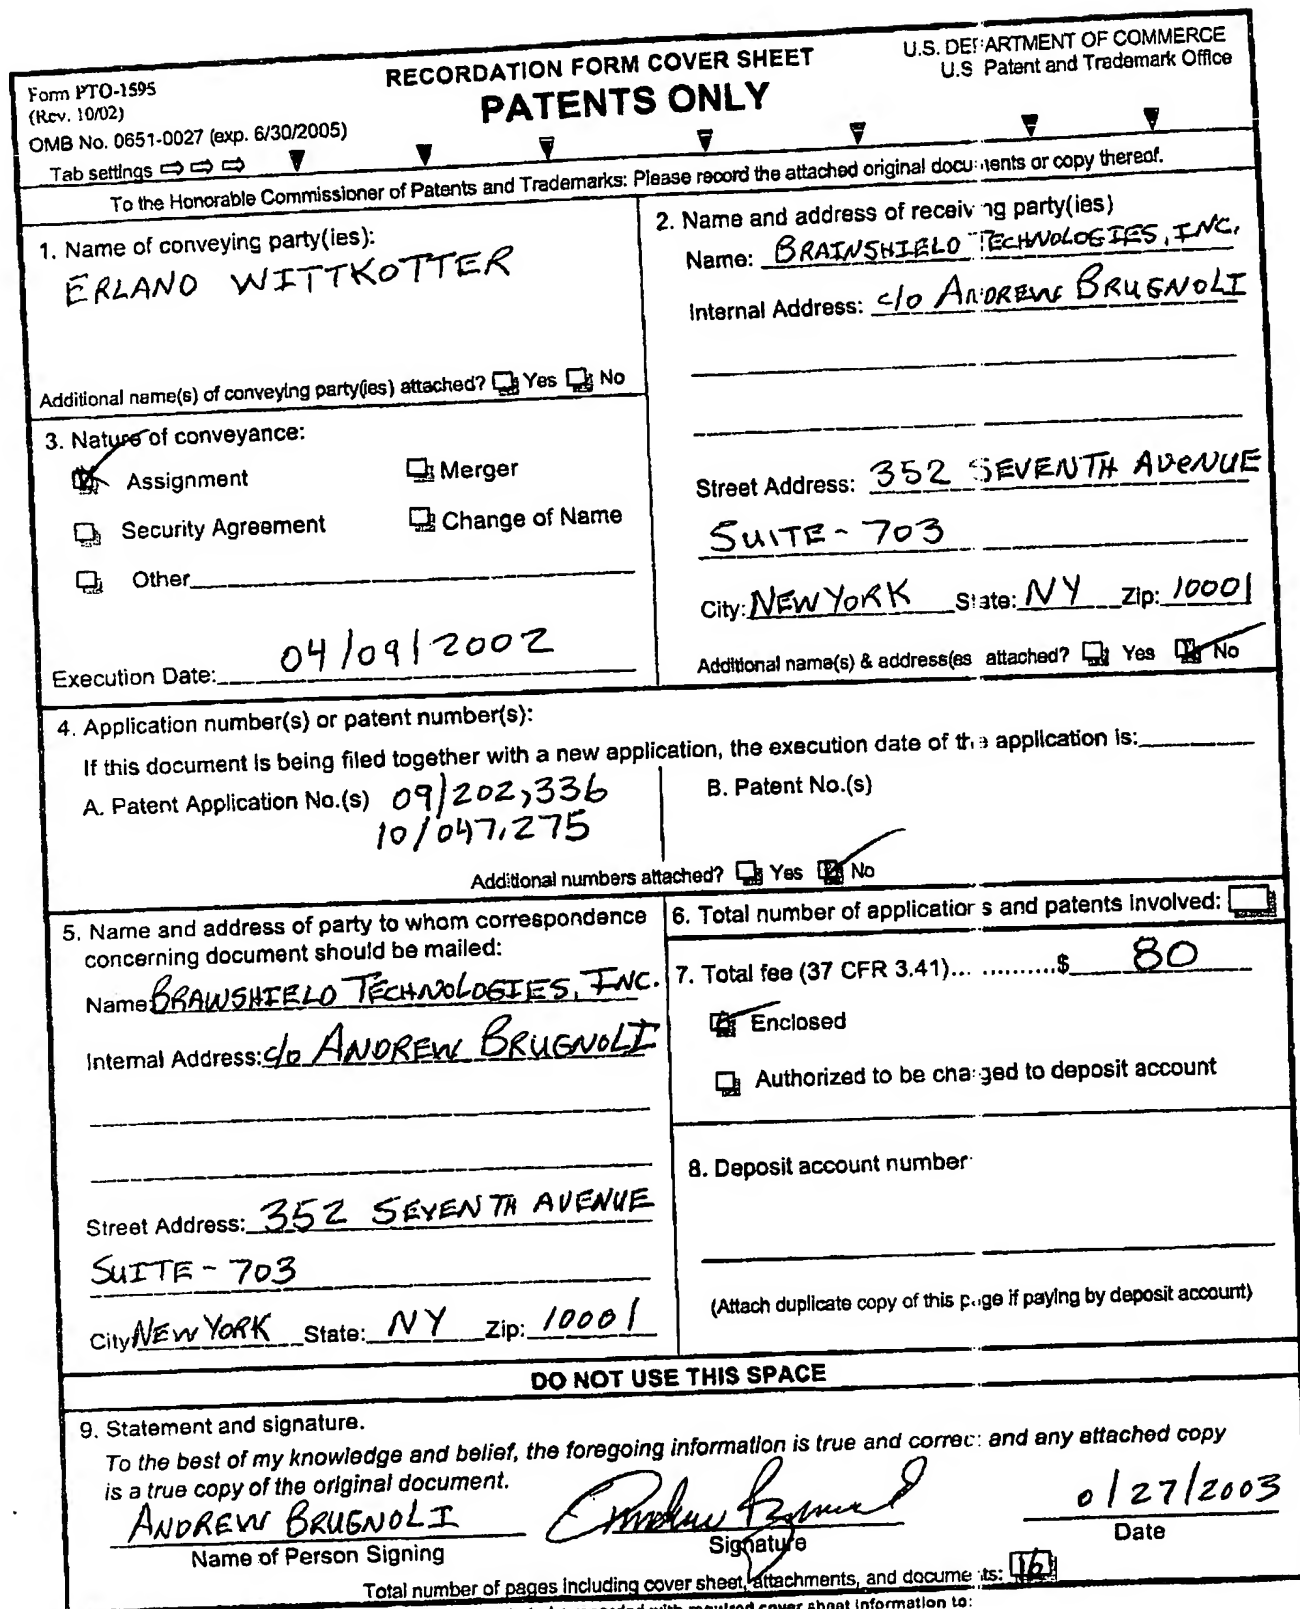 Form PTO-1595
(Rev. 10/02)
OMB No. 0651-0027 (exp. 6/30/2005)
Tab settings ⇨ ⇨ ⇨
RECORDATION FORM COVER SHEET
PATENTS ONLY
U.S. DEPARTMENT OF COMMERCE
U.S. Patent and Trademark Office
To the Honorable Commissioner of Patents and Trademarks: Please record the attached original documents or copy thereof.
1. Name of conveying party(ies):
ERLAND WITTKOTTER
Additional name(s) of conveying party(ies) attached? Yes No
2. Name and address of receiving party(ies)
Name: BRAINSHIELD TECHNOLOGIES, INC.
Internal Address: c/o ANDREW BRUGNOLI
Street Address: 352 SEVENTH AVENUE
SUITE - 703
City: NEW YORK State: NY Zip: 10001
Additional name(s) & address(es) attached? Yes No
3. Nature of conveyance:
Assignment Merger
Security Agreement Change of Name
Other
Execution Date: 04/09/2002
4. Application number(s) or patent number(s):
If this document is being filed together with a new application, the execution date of the application is:
A. Patent Application No.(s) 09/202,336
10/047,275
B. Patent No.(s)
Additional numbers attached? Yes No
5. Name and address of party to whom correspondence
concerning document should be mailed:
Name: BRAINSHIELD TECHNOLOGIES, INC.
Internal Address: c/o ANDREW BRUGNOLI
Street Address: 352 SEVENTH AVENUE
SUITE - 703
City: NEW YORK State: NY Zip: 10001
6. Total number of applications and patents involved:
7. Total fee (37 CFR 3.41)... ..........$ 80
Enclosed
Authorized to be charged to deposit account
8. Deposit account number
(Attach duplicate copy of this page if paying by deposit account)
DO NOT USE THIS SPACE
9. Statement and signature.
To the best of my knowledge and belief, the foregoing information is true and correct and any attached copy
is a true copy of the original document.
ANDREW BRUGNOLI 0/27/2003
Name of Person Signing Signature Date
Total number of pages including cover sheet, attachments, and documents: 16
required cover sheet information to: